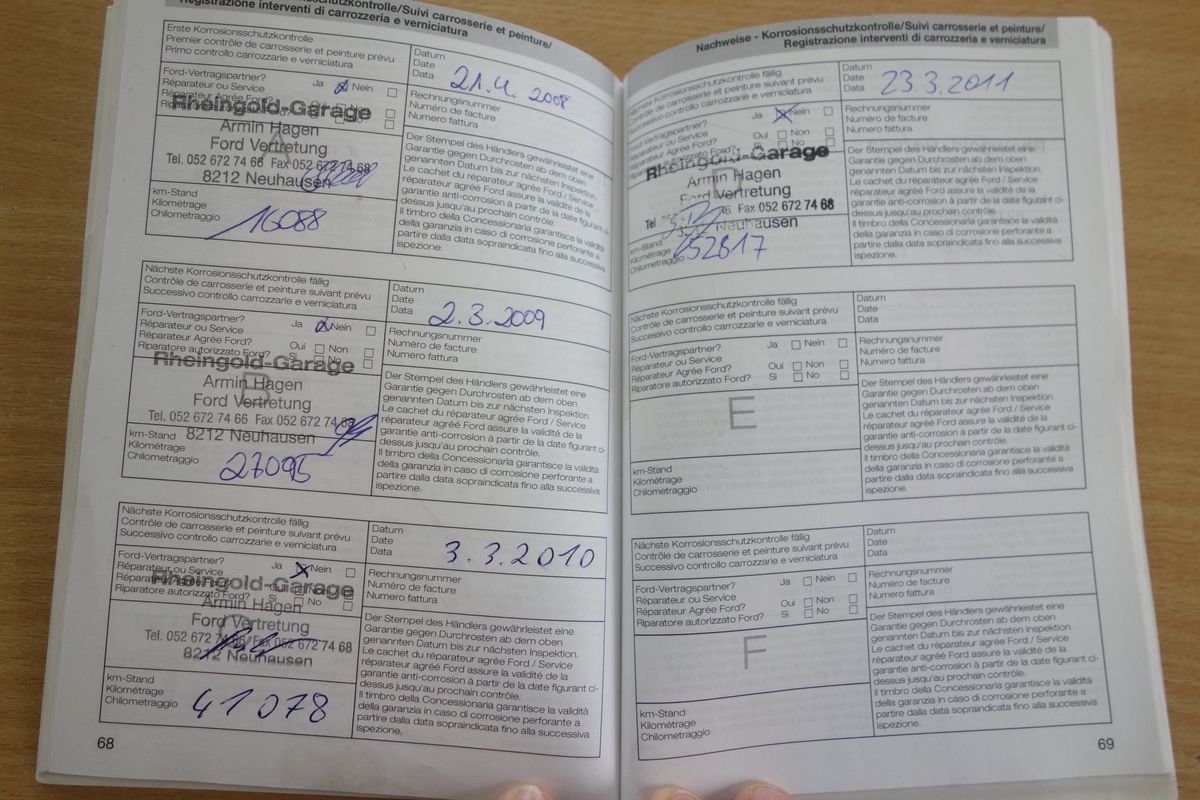 sschutzkontrolle/Suivi carrosserie et peinture/
Registrazione interventi di carrozzeria e verniciatura
Erste Korrosionsschutzkontrolle
Premier contrôle de carrosserie et peinture prévu
Primo controllo carrozzeria e verniciatura
Datum
Date
Data
21.4. 2008
Ford-Vertragspartner?
Ja
Nein
Réparateur ou Service
Réparateur Agrée Ford?
Rheingold-Garage
Armin Hagen
Ford Vertretung
Tel. 052 672 74 66 Fax 052 672 74 68
8212 Neuhausen
Rechnungsnummer
Numéro de facture
Numero fattura
km-Stand
Kilométrage
Chilometraggio
16088
Der Stempel des Händlers gewährleistet eine
Garantie gegen Durchrosten ab dem oben
genannten Datum bis zur nächsten Inspektion.
Le cachet du réparateur agrée Ford / Service
réparateur agréé Ford assure la validité de la
garantie anti-corrosion à partir de la date figurant ci-
dessus jusqu'au prochain contrôle.
Il timbro della Concessionaria garantisce la validità
della garanzia in caso di corrosione perforante a
partire dalla data sopraindicata fino alla successiva
ispezione.
Nächste Korrosionsschutzkontrolle fällig
Contrôle de carrosserie et peinture suivant prévu
Successivo controllo carrozzarie e verniciatura
Datum
Date
Data
2.3.2009
Ford-Vertragspartner?
Ja
Nein
Réparateur ou Service
Réparateur Agrée Ford?
Oui
Non
Riparatore autorizzato Ford?
Si
No
Rheingold-Garage
Armin Hagen
Ford Vertretung
Tel. 052 672 74 66 Fax 052 672 74 68
8212 Neuhausen
D
Rechnungsnummer
Numéro de facture
Numero fattura
km-Stand
Kilométrage
Chilometraggio
27095
Der Stempel des Händlers gewährleistet eine
Garantie gegen Durchrosten ab dem oben
genannten Datum bis zur nächsten Inspektion.
Le cachet du réparateur agrée Ford / Service
réparateur agréé Ford assure la validité de la
garantie anti-corrosion à partir de la date figurant ci-
dessus jusqu'au prochain contrôle.
Il timbro della Concessionaria garantisce la validità
della garanzia in caso di corrosione perforante a
partire dalla data sopraindicata fino alla successiva
ispezione.
Nächste Korrosionsschutzkontrolle fällig
Contrôle de carrosserie et peinture suivant prévu
Successivo controllo carrozzarie e verniciatura
Datum
Date
Data
3.3.2010
Ford-Vertragspartner?
Ja
Nein
Réparateur ou Service
Riparatore autorizzato Ford?
Si
No
Rheingold-Garage
Armin Hagen
Ford Vertretung
Tel. 052 672 74 66 Fax 052 672 74 68
8212 Neuhausen
Rechnungsnummer
Numéro de facture
Numero fattura
km-Stand
Kilométrage
Chilometraggio
41078
Der Stempel des Händlers gewährleistet eine
Garantie gegen Durchrosten ab dem oben
genannten Datum bis zur nächsten Inspektion.
Le cachet du réparateur agrée Ford / Service
réparateur agréé Ford assure la validité de la
garantie anti-corrosion à partir de la date figurant ci-
dessus jusqu'au prochain contrôle.
Il timbro della Concessionaria garantisce la validità
della garanzia in caso di corrosione perforante a
partire dalla data sopraindicata fino alla successiva
ispezione.
68
Nachweise - Korrosionsschutzkontrolle/Suivi carrosserie et peinture/
Registrazione interventi di carrozzeria e verniciatura
Nächste Korrosionsschutzkontrolle fällig
Contrôle de carrosserie et peinture suivant prévu
Successivo controllo carrozzarie e verniciatura
Datum
Date
Data
23.3.2011
Ford-Vertragspartner?
Ja
Nein
Réparateur ou Service
Réparateur Agrée Ford?
Oui
Non
No
Rheingold-Garage
Armin Hagen
Ford Vertretung
Tel Fax 052 672 74 68
Neuhausen
Rechnungsnummer
Numéro de facture
Numero fattura
km-Stand
Kilométrage
Chilometraggio
52817
Der Stempel des Händlers gewährleistet eine
Garantie gegen Durchrosten ab dem oben
genannten Datum bis zur nächsten Inspektion.
Le cachet du réparateur agrée Ford / Service
réparateur agréé Ford assure la validité de la
garantie anti-corrosion à partir de la date figurant ci-
dessus jusqu'au prochain contrôle.
Il timbro della Concessionaria garantisce la validità
della garanzia in caso di corrosione perforante a
partire dalla data sopraindicata fino alla successiva
ispezione.
Nächste Korrosionsschutzkontrolle fällig
Contrôle de carrosserie et peinture suivant prévu
Successivo controllo carrozzarie e verniciatura
Datum
Date
Data
Ford-Vertragspartner?
Ja
Nein
Réparateur ou Service
Réparateur Agrée Ford?
Oui
Non
Riparatore autorizzato Ford?
Si
No
E
Rechnungsnummer
Numéro de facture
Numero fattura
km-Stand
Kilométrage
Chilometraggio
Der Stempel des Händlers gewährleistet eine
Garantie gegen Durchrosten ab dem oben
genannten Datum bis zur nächsten Inspektion.
Le cachet du réparateur agrée Ford / Service
réparateur agréé Ford assure la validité de la
garantie anti-corrosion à partir de la date figurant ci-
dessus jusqu'au prochain contrôle.
Il timbro della Concessionaria garantisce la validità
della garanzia in caso di corrosione perforante a
partire dalla data sopraindicata fino alla successiva
ispezione.
Nächste Korrosionsschutzkontrolle fällig
Contrôle de carrosserie et peinture suivant prévu
Successivo controllo carrozzarie e verniciatura
Datum
Date
Data
Ford-Vertragspartner?
Ja
Nein
Réparateur ou Service
Réparateur Agrée Ford?
Oui
Non
Riparatore autorizzato Ford?
Si
No
F
Rechnungsnummer
Numéro de facture
Numero fattura
km-Stand
Kilométrage
Chilometraggio
Der Stempel des Händlers gewährleistet eine
Garantie gegen Durchrosten ab dem oben
genannten Datum bis zur nächsten Inspektion.
Le cachet du réparateur agrée Ford / Service
réparateur agréé Ford assure la validité de la
garantie anti-corrosion à partir de la date figurant ci-
dessus jusqu'au prochain contrôle.
Il timbro della Concessionaria garantisce la validità
della garanzia in caso di corrosione perforante a
partire dalla data sopraindicata fino alla successiva
ispezione.
69